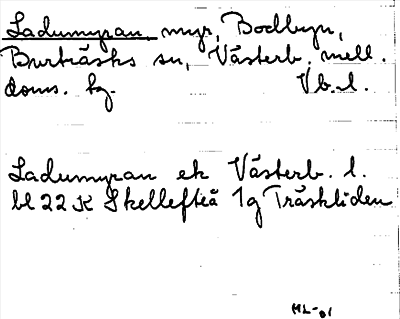 Ladumyran, myr, Bodbyn,
Burträsks sn, Västerb. mell.
doms. hg. Vb. l.
Ladumyran ek Västerb. l.
bl 22 K Skellefteå 1g Träskliden
ML-81